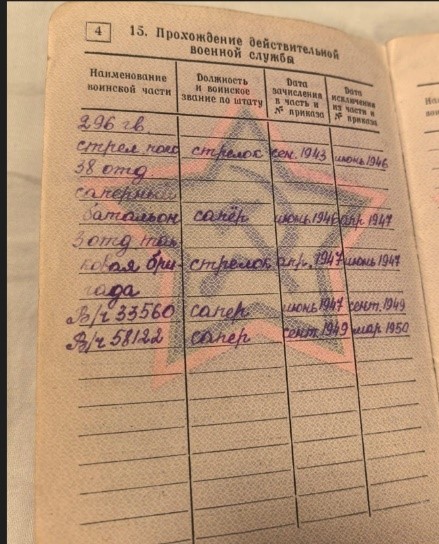 4
15. Прохождение действительной
военной службы
Наименование воинской части
Должность и воинское звание по штату
Дата зачисления в часть и № приказа
Дата исключения из части и № приказа
296 гв.
стрел полк стрелок сен. 1943 июнь 1946
38 отд
саперный
батальон сапёр июнь 1946 апр 1947
3 отд тан
ковая бри- стрелок апр. 1947 июнь 1947
гада
В/ч 33560 сапер июнь 1947 сент. 1949
В/ч 58122 сапер сент 1949 мар 1950